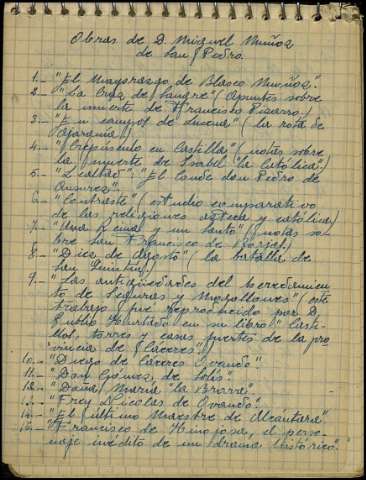 Obras de D. Miguel Muñoz
de San Pedro.
1.- "El Mayorazgo de Blasco Muñoz".
2.- "La Cruz de Sangre" (Apuntes sobre
la muerte de Francisco Pizarro)
3.- "En campos de Lucena" (la rota de
Ajarquía)
4.- "Crepúsculo en Castilla" (notas sobre
la muerte de Isabel "la Católica")
5.- "Lealtad". "El Conde don Pedro de
Ansúrez".
6.- "Contraste" (estudio comparativo
de las religiones azteca y católica)
7.- "Una Reina y un Santo" (notas so-
bre San Francisco de Borja.)
8.- "Diez de agosto" (la batalla de
San Quintín.)
9.- "Las antigüedades del heredamien-
to de Seguras y Mogollones" (este
trabajo fue reproducido por D.
Publio Hurtado en su libro "Casti-
llos, torres y casas fuertes de la pro-
vincia de Cáceres.)
10.- "Diego de Cáceres Ovando".
11.- "Don Gómez de Solís"
12.- "Doña María "la Brava"
13.- "Frey Nicolas de Ovando".
14.- "El último Maestre de Alcántara".
15.- "Francisco de Hinojosa, el perso-
naje inédito de un drama histórico."